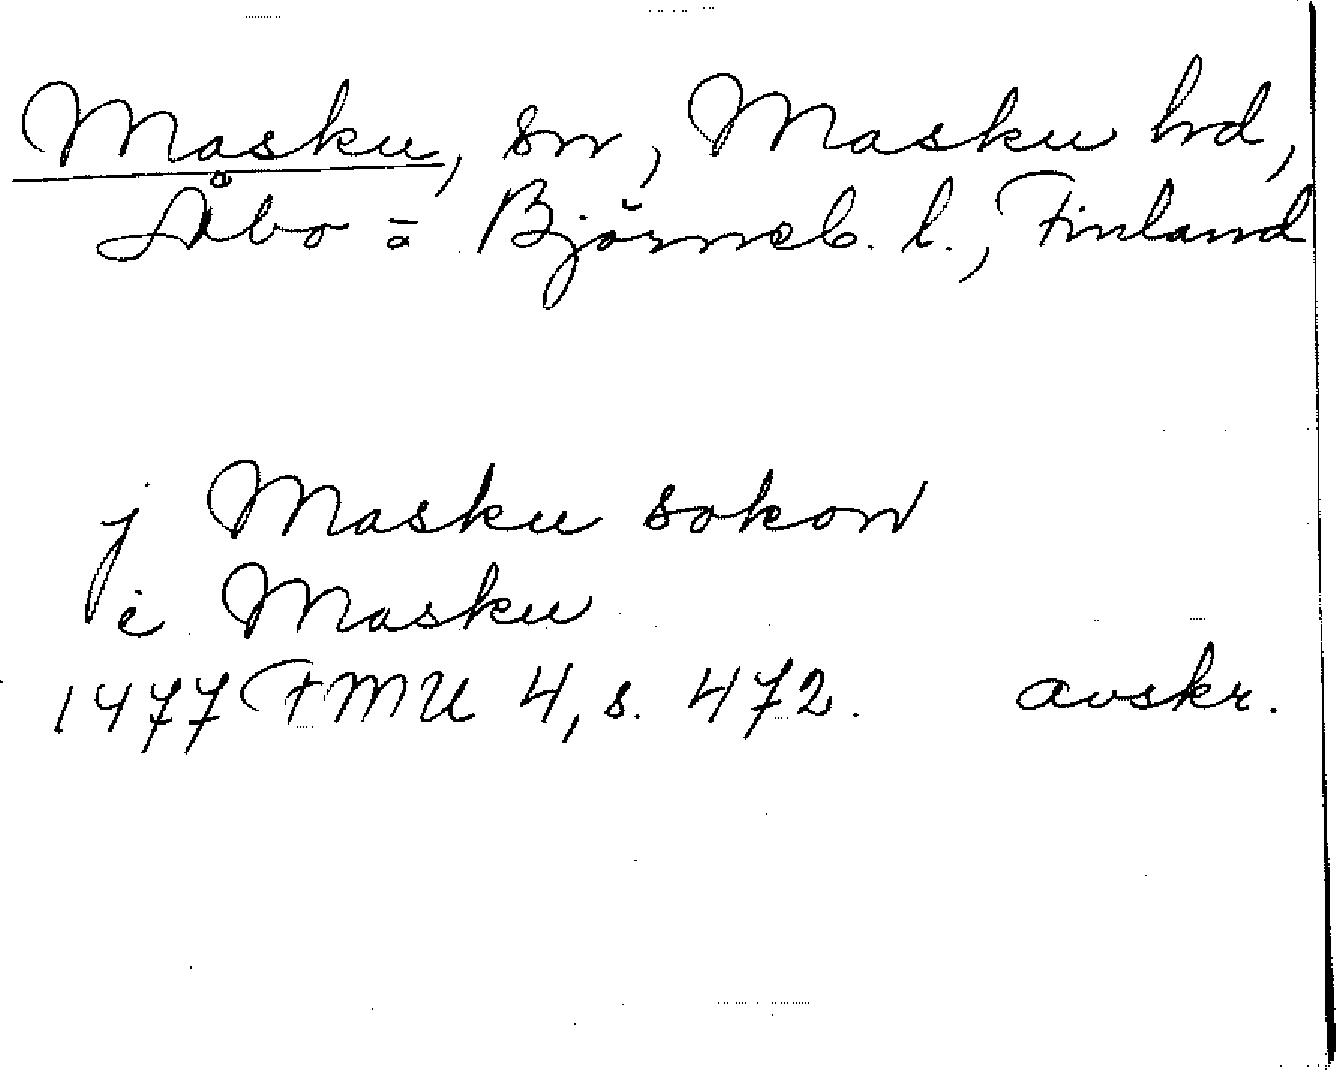 Masku, sn, Masku hd,
Åbo = Björneb. l., Finland
j Masku sokon
i Masku
1477 FMU 4, s. 472. avskr.